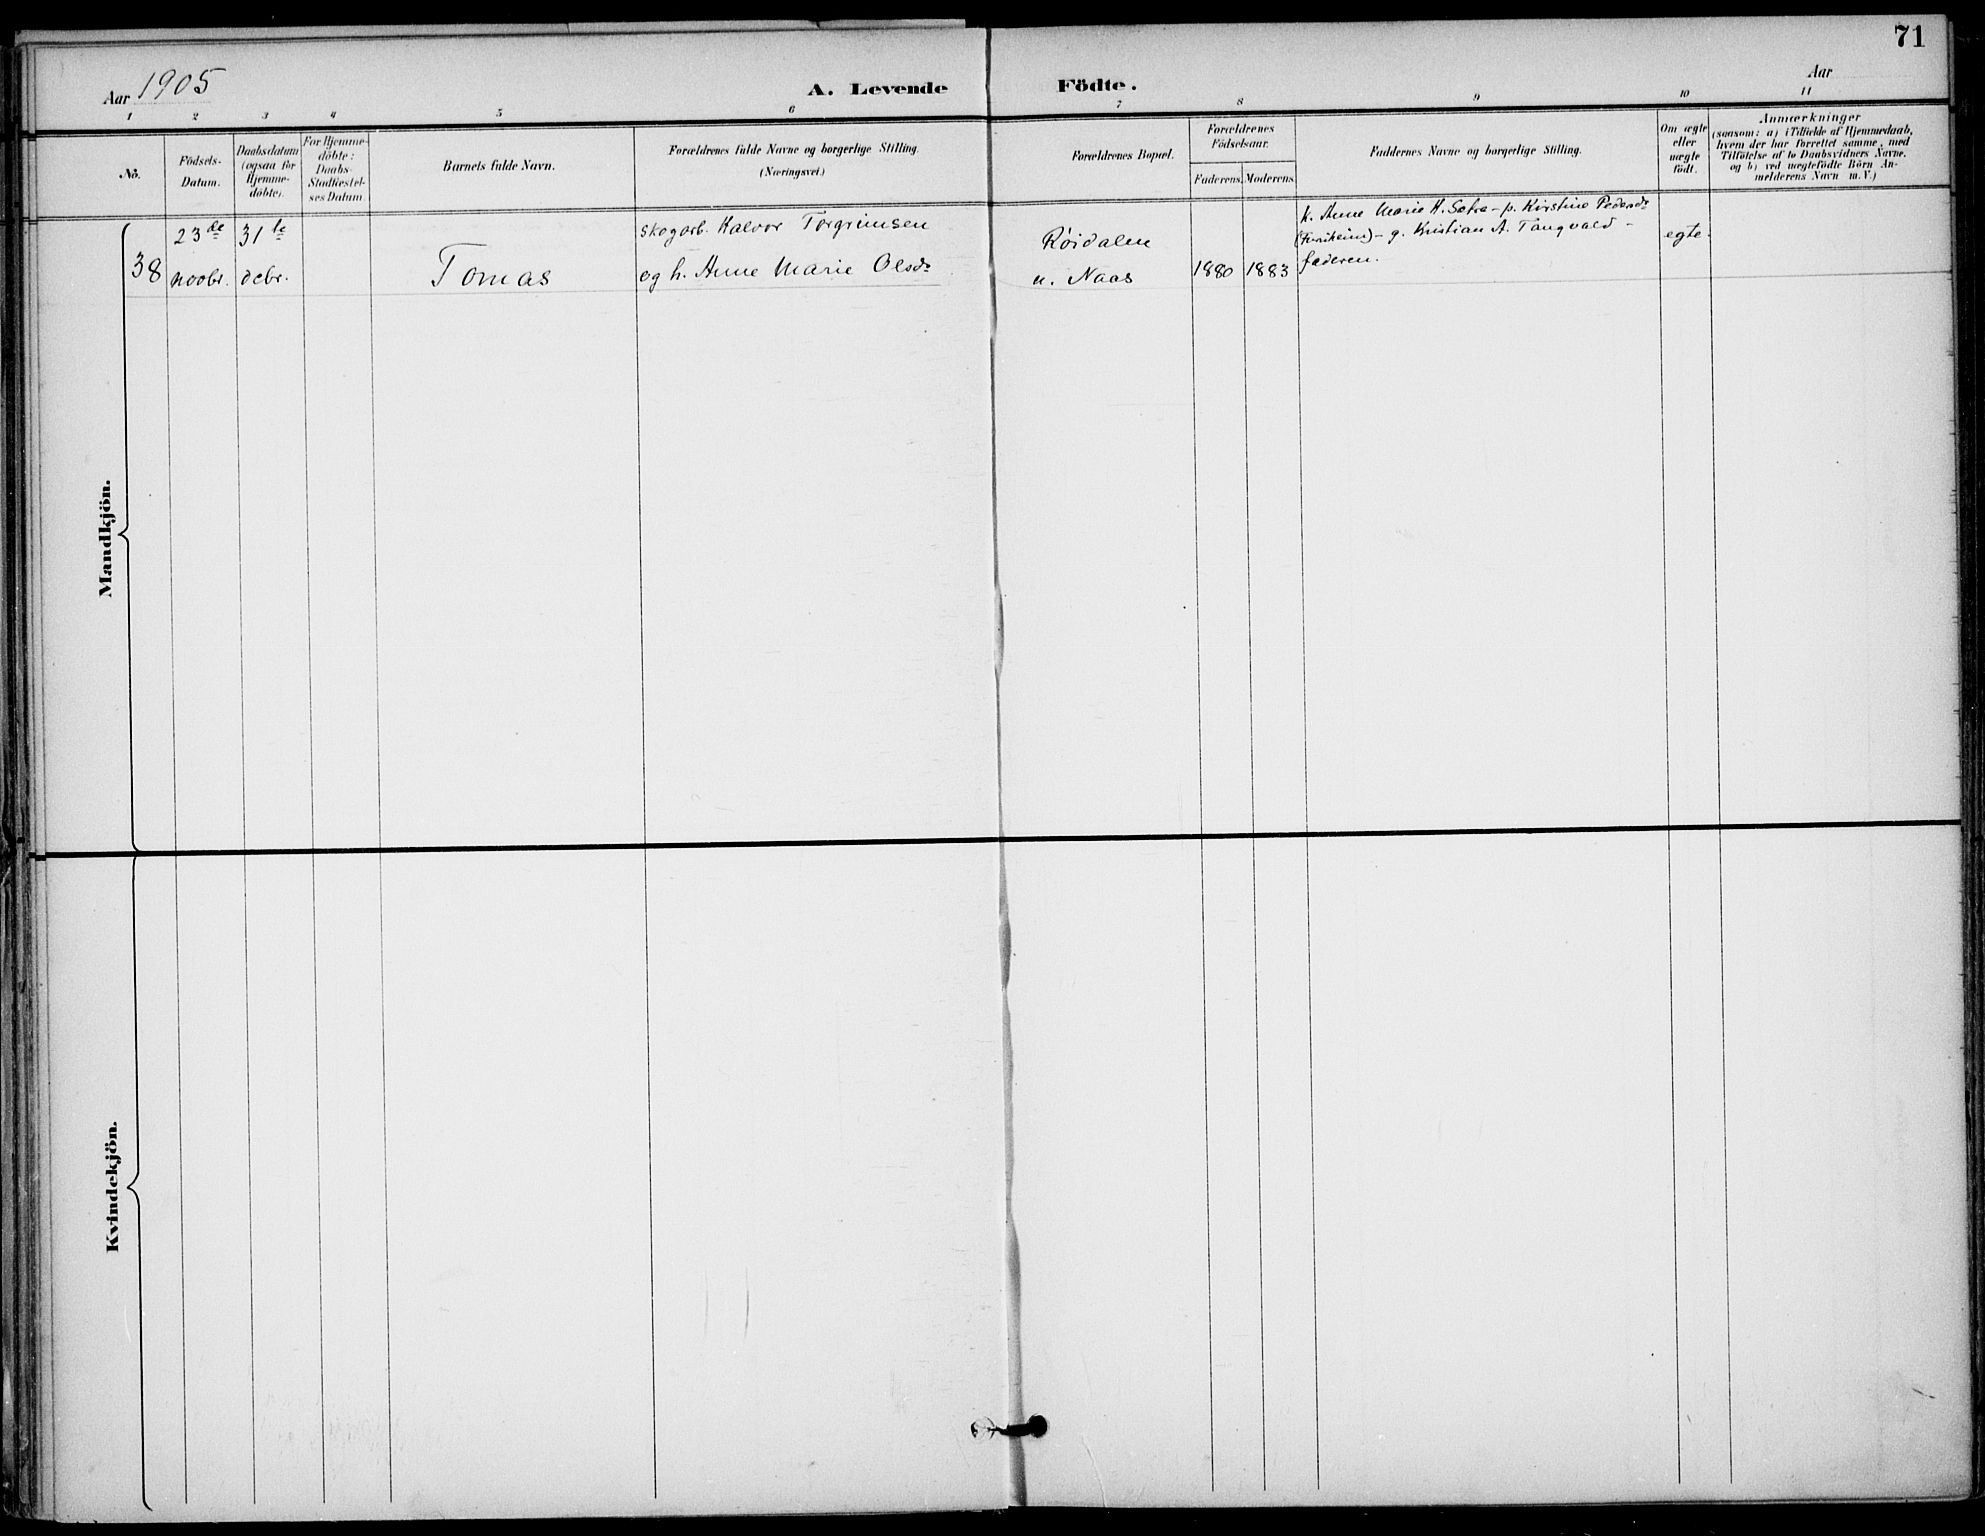 71
Aar 1905
A. Levende Födte.
Aar
1 2 3 4 5 6 7 8 9 10 11
No.
Födsels-
Datum.
Daabsdatum
(ogsaa for
Hjemme-
döbte).
For Hjemme-
döbte:
Daabs-
Stadfæstel-
ses Datum.
Barnets fulde Navn.
Forældrenes fulde Navne og borgerlige Stilling.
(Næringsvei.)
Forældrenes Bopæl.
Forældrenes
Födselsaar.
Faderens. Moderens.
Faddernes Navne og borgerlige Stilling.
Om ægte
eller
uægte
födt.
Anmærkninger
(saasom: a) i Tilfælde af Hjemmedaab,
hvem der har forrettet samme, med
Tilföielse af to Daabsvidners Navne,
og b) ved uægtefödte Börn An-
melderens Navn m. V.)
Mandkjön.
38
23de
novbr.
31te
decbr.
Tomas
skogarb. Halvor Torgrimsen
og h. Anne Marie Olsdr
Röidalen
u. Naas
1880 1883
k. Anne Marie H. Sætra - p. Kirstine Pedersdr
- g. Kristian A. Tangvald -
faderen.
egte.
Kvindekjön.